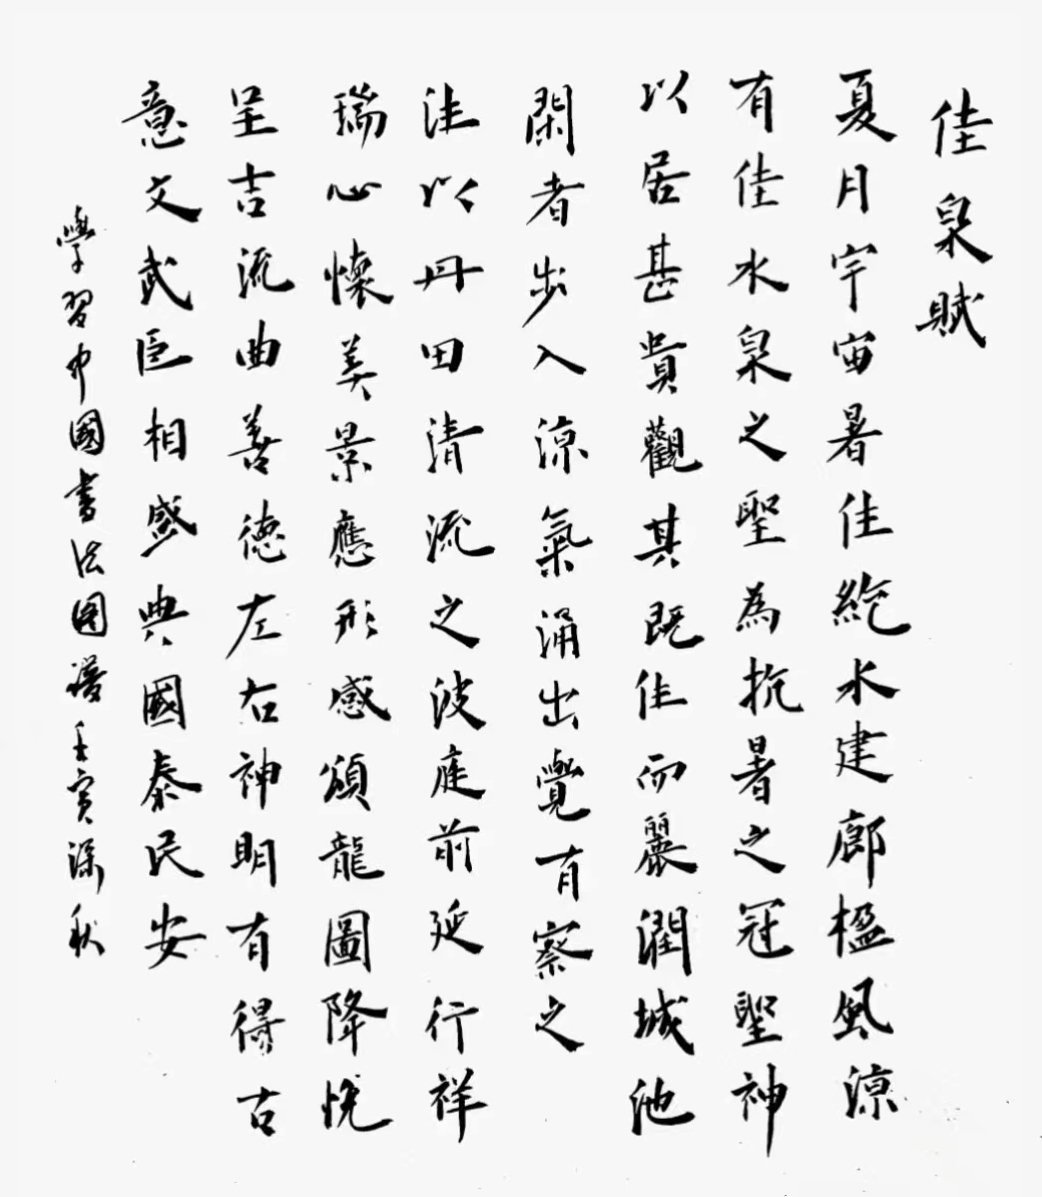 佳泉賦
夏月宇宙暑佳紇水建廊楹風涼
有佳水泉之聖為抗暑之冠聖神
以居甚貴觀其既佳而麗潤城池
閑者步入涼氣涌出覺有察之
洼以丹田清流之波庭前延行祥
瑞心懷美景應形感頌龍圖降悅
呈吉流曲善德左右神明有得古
意文武臣相盛典國泰民安
學習中國書法圖譜壬寅深秋